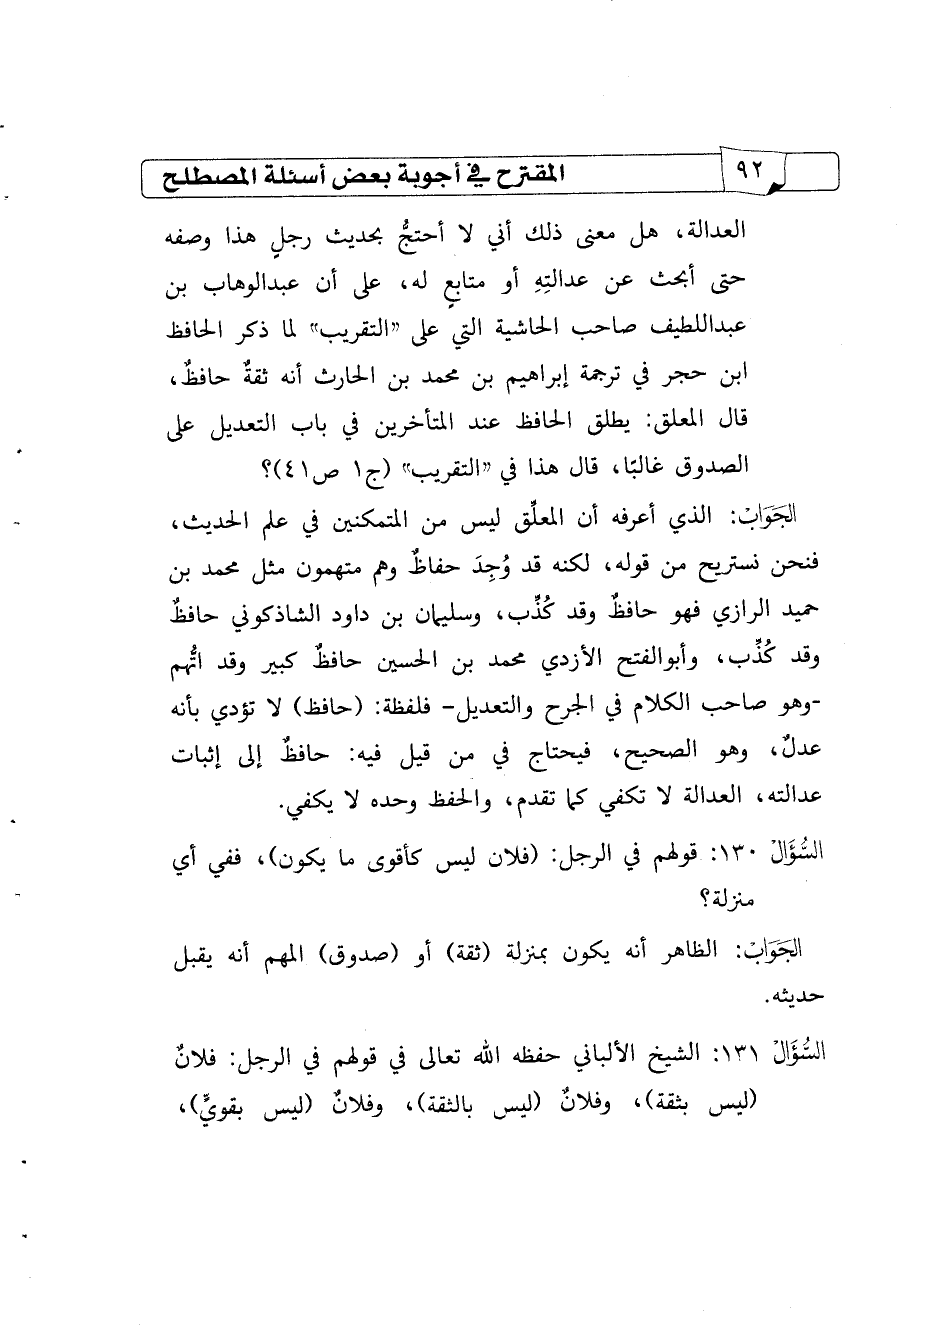 ٩٢
المقترح في أجوبة بعض أسئلة المصطلح
العدالة، هل معنى ذلك أني لا أحتجُّ بحديث رجلٍ هذا وصفه
حتى أبحث عن عدالتِهِ أو متابعٍ له، على أن عبدالوهاب بن
عبداللطيف صاحب الحاشية التي على «التقريب» لما ذكر الحافظ
ابن حجر في ترجمة إبراهيم بن محمد بن الحارث أنه ثقةٌ حافظٌ،
قال المعلق: يطلق الحافظ عند المتأخرين في باب التعديل على
الصدوق غالبًا، قال هذا في «التقريب» (ج١ ص٤١)؟
الجَوَابُ: الذي أعرفه أن المعلِّق ليس من المتمكنين في علم الحديث،
فنحن نستريح من قوله، لكنه قد وُجِدَ حفاظٌ وهم متهمون مثل محمد بن
حميد الرازي فهو حافظٌ وقد كُذِّب، وسليمان بن داود الشاذكوني حافظٌ
وقد كُذِّب، وأبوالفتح الأزدي محمد بن الحسين حافظٌ كبير وقد اتُّهم
-وهو صاحب الكلام في الجرح والتعديل- فلفظة: (حافظ) لا تؤدي بأنه
عدلٌ، وهو الصحيح، فيحتاج في من قيل فيه: حافظٌ إلى إثبات
عدالته، العدالة لا تكفي كما تقدم، والحفظ وحده لا يكفي.
السُّؤَالُ ١٣٠: قولهم في الرجل: (فلان ليس كأقوى ما يكون)، ففي أي
منزلة؟
الجَوَابُ: الظاهر أنه يكون بمنزلة (ثقة) أو (صدوق) المهم أنه يقبل
حديثه.
السُّؤَالُ ١٣١: الشيخ الألباني حفظه الله تعالى في قولهم في الرجل: فلانٌ
(ليس بثقة)، وفلانٌ (ليس بالثقة)، وفلانٌ (ليس بقويٍّ)،